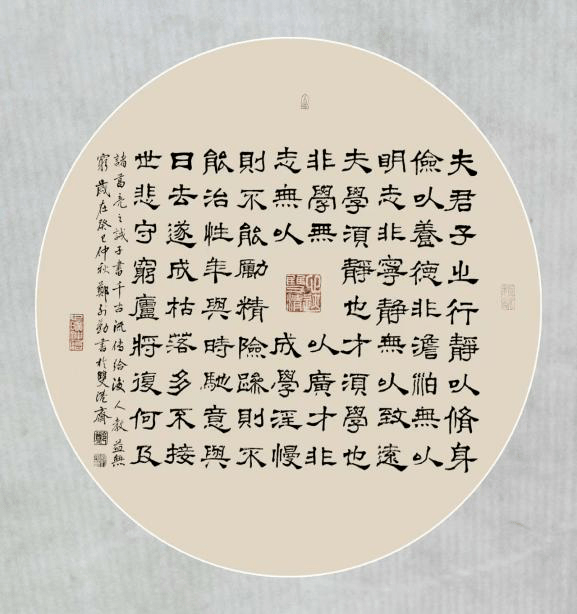 夫君子之行靜以脩身
儉以養德非澹泊無以
明志非寧靜無以致遠
夫學須靜也才須學也
非學無以廣才非
志無以成學淫慢
則不能勵精險躁則不
能治性年與時馳意與
日去遂成枯落多不接
世悲守窮廬將復何及
諸葛亮之誡子書千古流傳給後人教益無
窮歲在癸巳仲秋鄭勤書於雙港齋